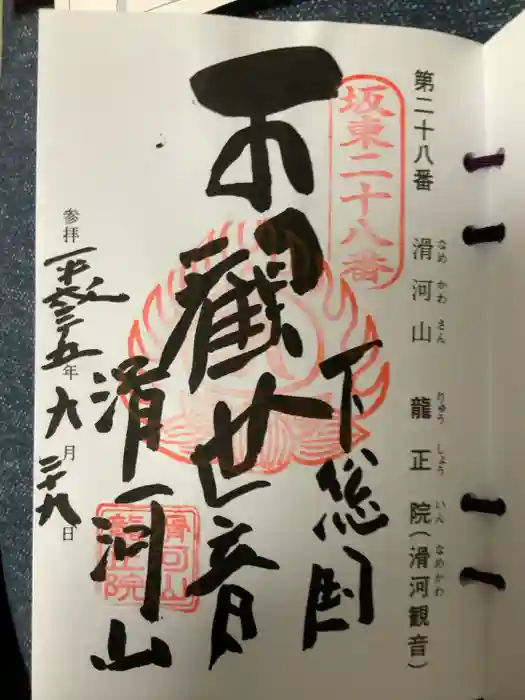 第二十八番 滑河山 龍正院(滑河観音)
なめ かわ さん りゅう しょう いん なめかわ
坂東二十八番
下総国
觀世音
滑河山
滑河山
龍正院
参拝 平成二十五年九月二十九日